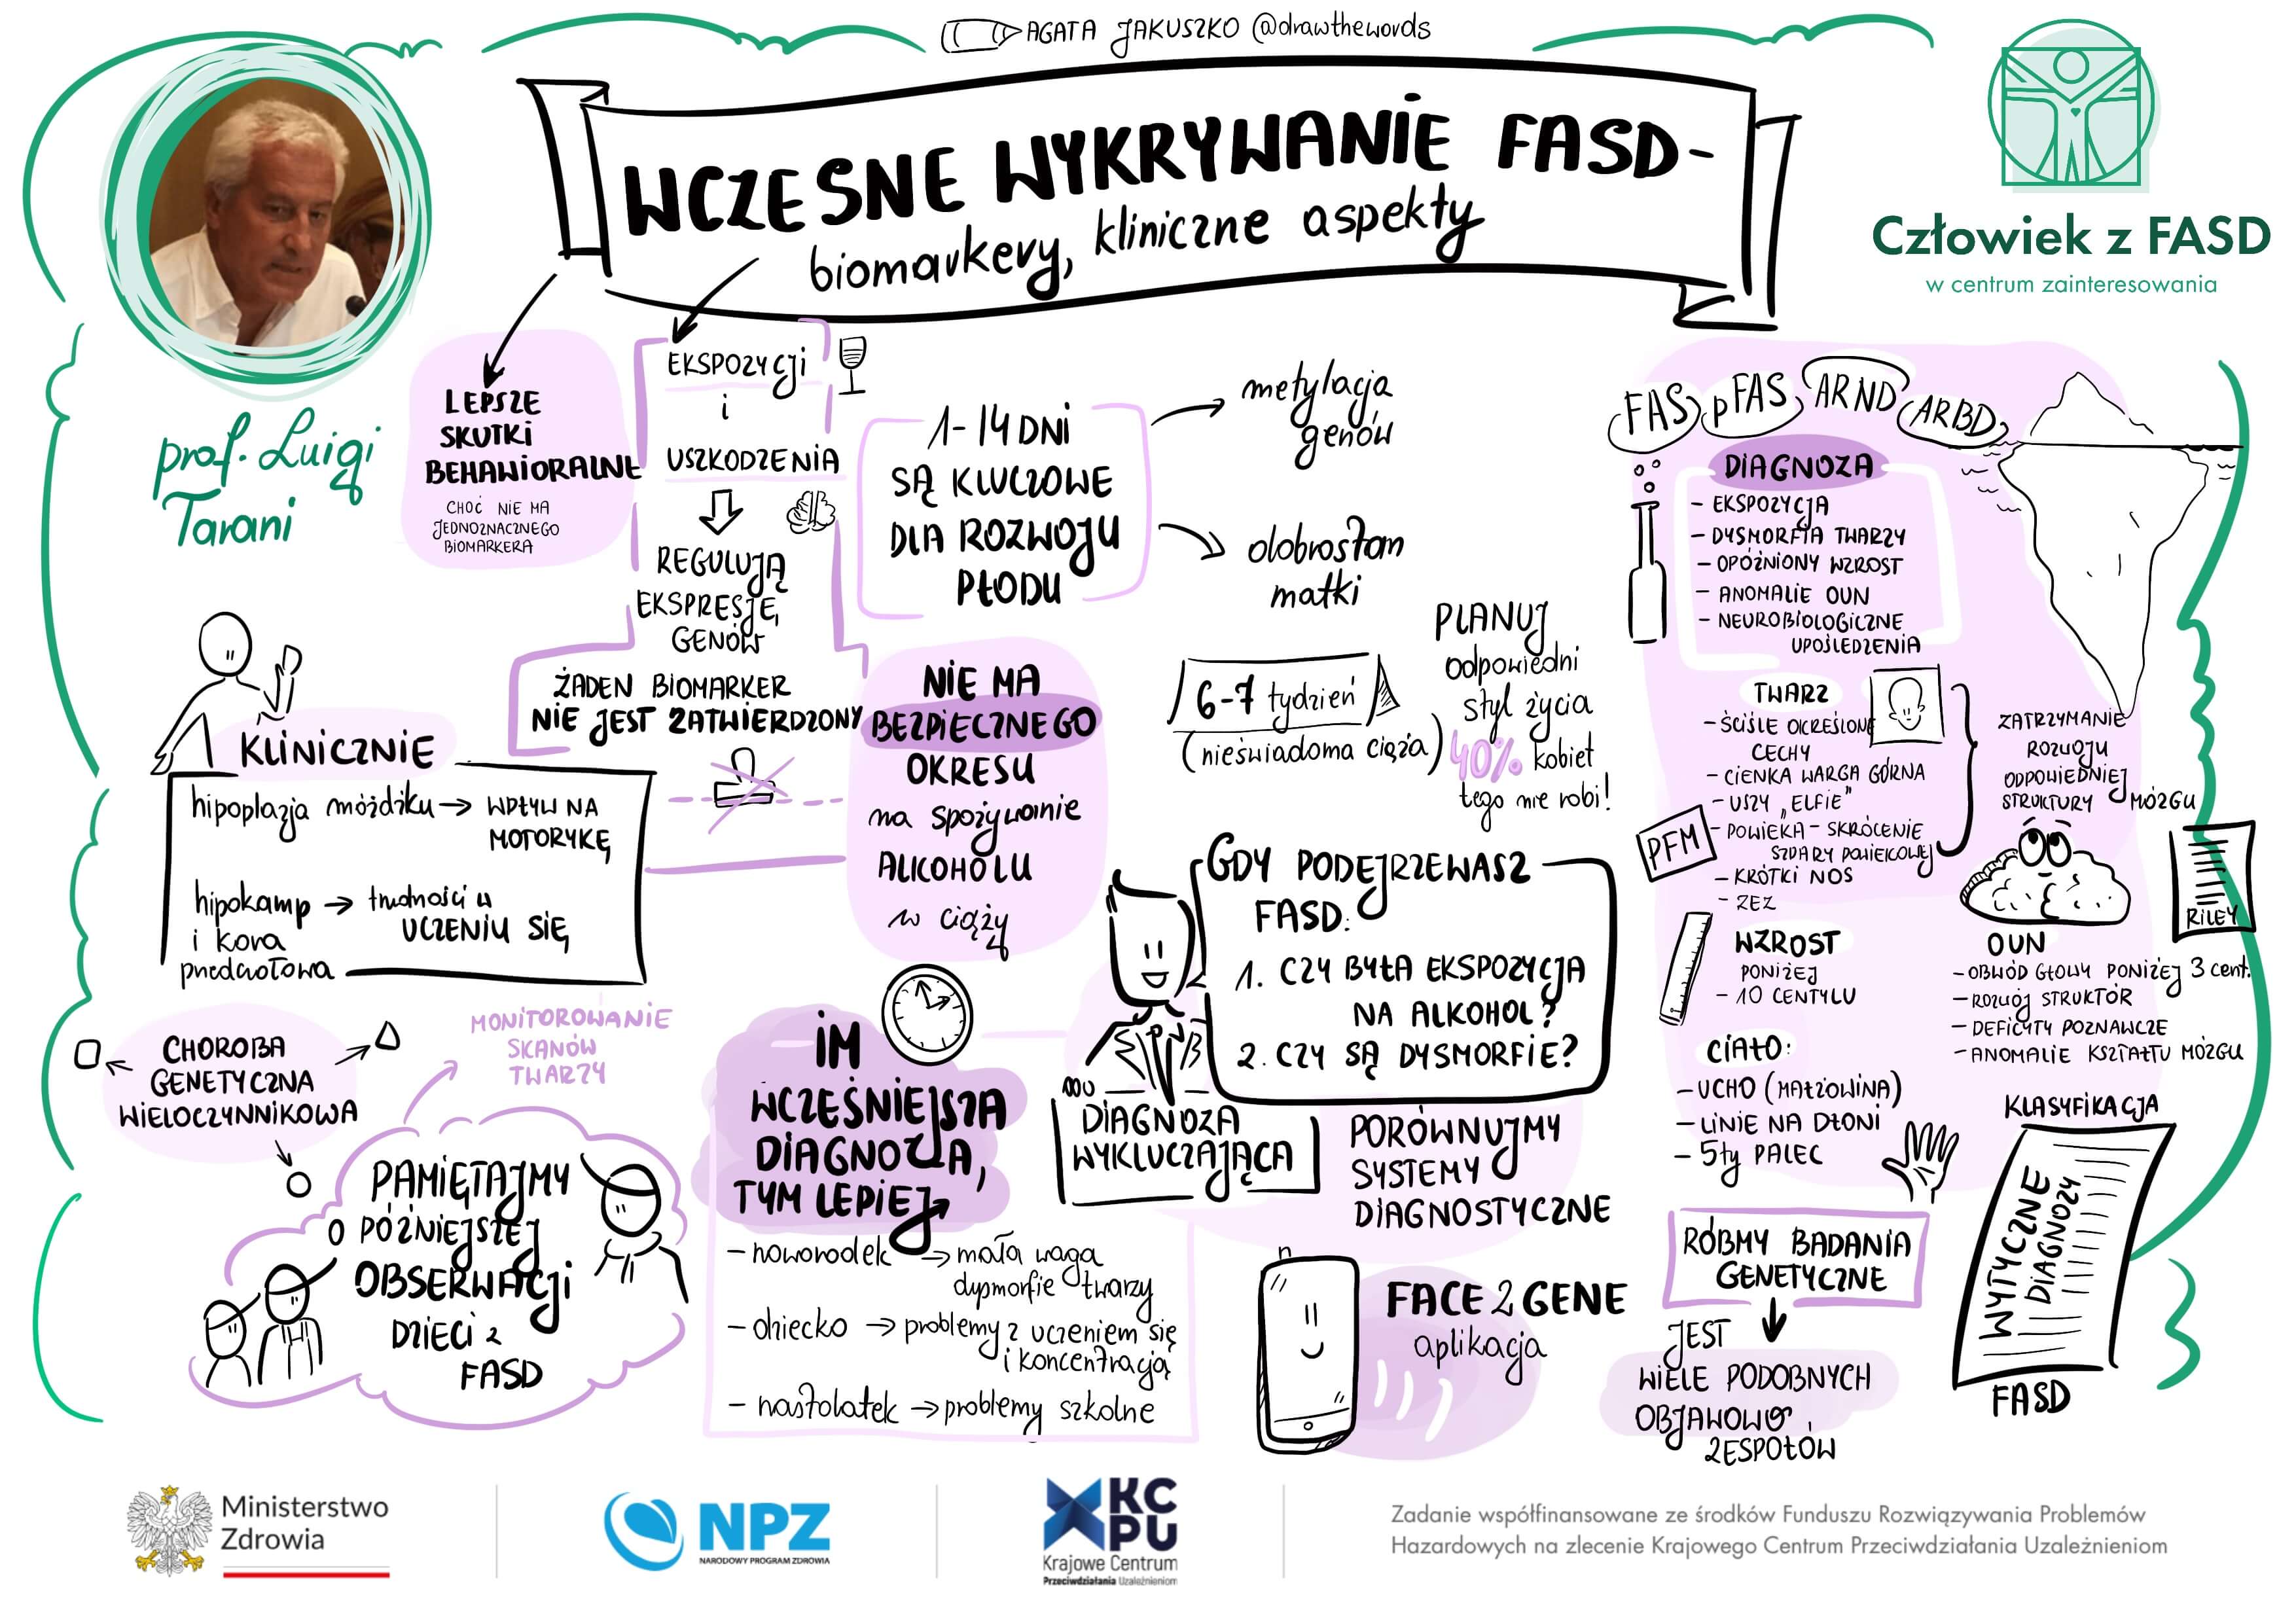 AGATA JAKUSZKO @drawthewords
WCZESNE WYKRYWANIE FASD-
biomarkery, kliniczne aspekty
Człowiek z FASD
w centrum zainteresowania
prof. Luigi
Tarani
LEPSZE
SKUTKI
BEHAWIORALNE
CHOĆ NIE MA
JEDNOZNACZNEGO
BIOMARKERA
EKSPOZYCJI
i
USZKODZENIA
REGULUJĄ
EKSPRESJĘ
GENÓW
ŻADEN BIOMARKER
NIE JEST ZATWIERDZONY
1-14 DNI
SĄ KLUCZOWE
DLA ROZWOJU
PŁODU
metylacja
genów
dobrostan
matki
NIE MA
BEZPIECZNEGO
OKRESU
na spożywanie
ALKOHOLU
w ciąży
6-7 tydzień
(nieświadoma ciąża)
PLANUJ
odpowiedni
styl życia
40% kobiet
tego nie robi!
KLINICZNIE
hipoplazja móżdżku → WPŁYW NA
MOTORYKĘ
hipokamp → trudności w
i kora UCZENIU SIĘ
przedczołowa
CHOROBA
GENETYCZNA
WIELOCZYNNIKOWA
MONITOROWANIE
SKANÓW
TWARZY
PAMIĘTAJMY
O PÓŹNIEJSZEJ
OBSERWACJI
DZIECI z
FASD
IM
WCZEŚNIEJSZA
DIAGNOZA,
TYM LEPIEJ
- noworodek → mała waga
dysmorfie twarzy
- dziecko → problemy z uczeniem się
i koncentracją
- nastolatek → problemy szkolne
GDY PODEJRZEWASZ
FASD:
1. CZY BYŁA EKSPOZYCJA
NA ALKOHOL?
2. CZY SĄ DYSMORFIE?
DIAGNOZA
WYKLUCZAJĄCA
PORÓWNUJMY
SYSTEMY
DIAGNOSTYCZNE
FACE2GENE
aplikacja
FAS pFAS ARND ARBD
DIAGNOZA
- EKSPOZYCJA
- DYSMORFIA TWARZY
- OPÓŹNIONY WZROST
- ANOMALIE OUN
- NEUROBIOLOGICZNE
UPOŚLEDZENIA
TWARZ
- ŚCIŚLE OKREŚLONE
CECHY
- CIENKA WARGA GÓRNA
- USZY „ELFIE"
- POWIEKA - SKRÓCENIE
SZPARY POWIEKOWEJ
- KRÓTKI NOS
- ZEZ
PFM
WZROST
PONIŻEJ
- 10 CENTYLU
CIAŁO:
- UCHO (MAŁŻOWINA)
- LINIE NA DŁONI
- 5ty PALEC
ZATRZYMANIE
ROZWOJU
ODPOWIEDNIEJ
STRUKTURY MÓZGU
RILEY
OUN
- OBWÓD GŁOWY PONIŻEJ 3 cent.
- ROZWÓJ STRUKTÓR
- DEFICYTY POZNAWCZE
- ANOMALIE KSZTAŁTU MÓZGU
KLASYFIKACJA
WYTYCZNE
DIAGNOZY
FASD
RÓBMY BADANIA
GENETYCZNE
JEST
WIELE PODOBNYCH
OBJAWOWO
ZESPOŁÓW
Ministerstwo
Zdrowia
NPZ
NARODOWY PROGRAM ZDROWIA
KC
PU
Krajowe Centrum
Przeciwdziałania Uzależnieniom
Zadanie współfinansowane ze środków Funduszu Rozwiązywania Problemów
Hazardowych na zlecenie Krajowego Centrum Przeciwdziałania Uzależnieniom